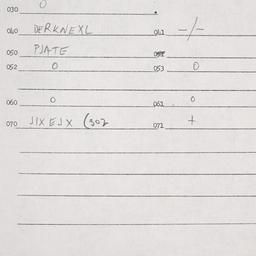 030 0
040 DERKNEXL 041 -/-
050 PJATE
052 0 053 0
060 0 061 0
070 JIXEJX (302 071 +